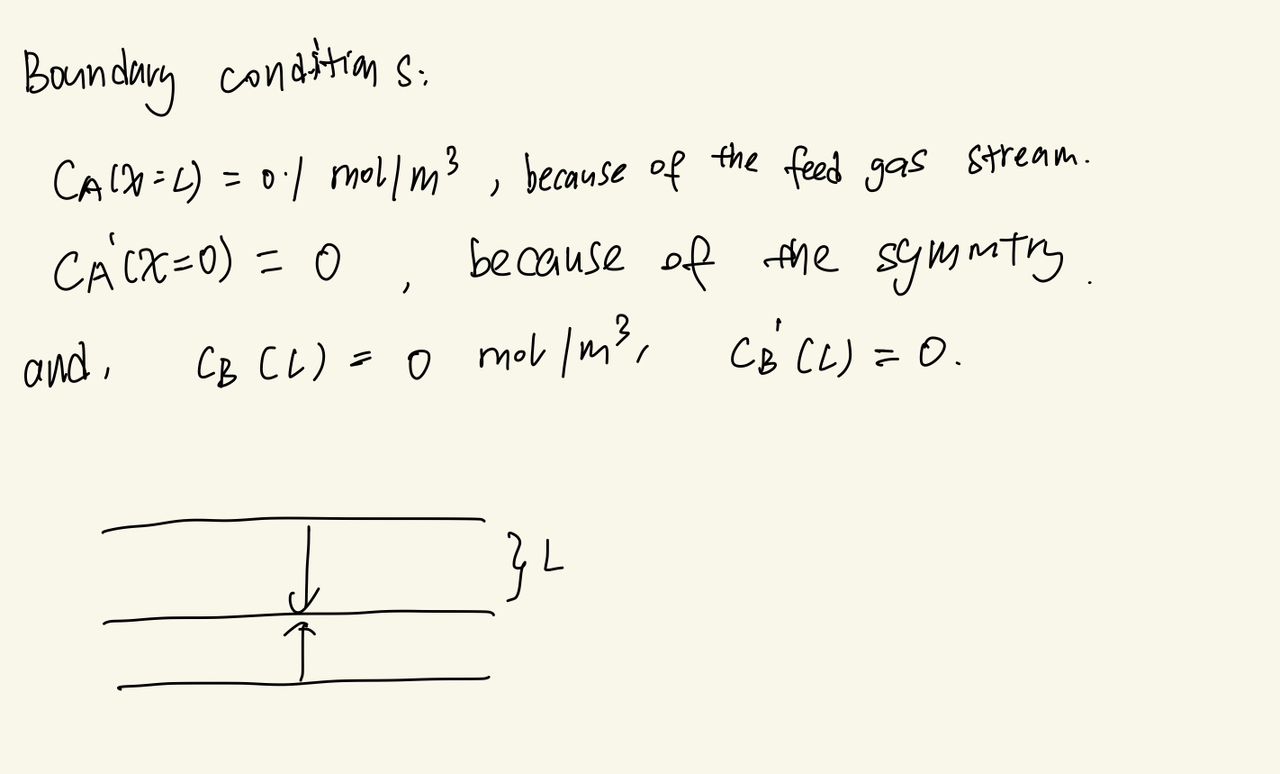 Boundary conditions:
CA(x=L) = 0.1 mol/m³, because of the feed gas stream.
CA'(x=0) = 0, because of the symmtry.
and, CB(L) = 0 mol/m³, CB'(L) = 0.
} L